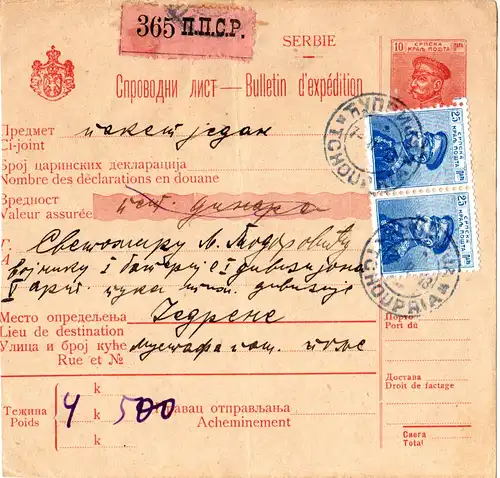 365 П.П.С.Р.
SERBIE
10 СРПСКА КРАЉ. ПОШТА ПАРА
Спроводни лист — Bulletin d'expédition
25 СРПСКА КРАЉ. ПОШТА
Предмет пакет један
Ci-joint
Број царинских декларација
Nombre des déclarations en douane
25 СРПСКА КРАЉ. ПОШТА
Вредност динара
Valeur assurée
Г. Светомиру Л. Тодоровићу
A
војнику I батерије I дивизиона
TCHOUPRIA
Место опредељења Једрене
Lieu de destination
Улица и број куће Мустафа паш.
Rue et №
Порто
Port dû
k
Тежина 4 k 500 равац отправљања
Poids Acheminement
k
Достава
Droit de factage
Свега
Total